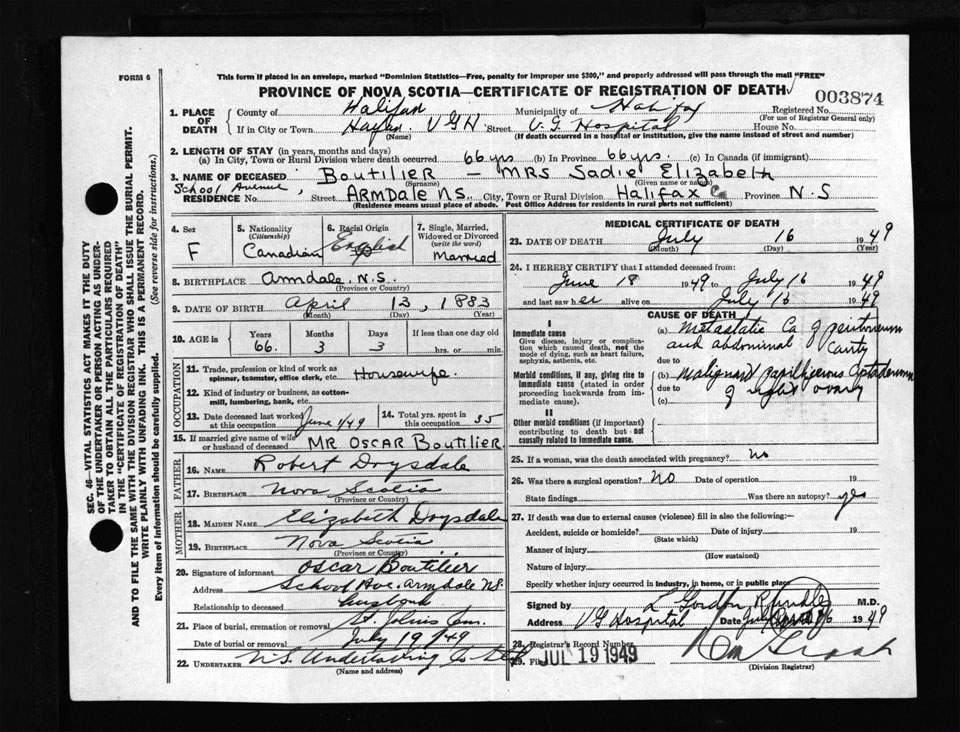 FORM 6
This form if placed in an envelope, marked "Dominion Statistics—Free, penalty for improper use $300," and properly addressed will pass through the mail "FREE"
PROVINCE OF NOVA SCOTIA—CERTIFICATE OF REGISTRATION OF DEATH
003874
1. PLACE OF DEATH
County of Halifax Municipality of Halifax Registered No.
(For use of Registrar General only)
If in City or Town VGH Street V. G. Hospital House No.
(Name) (If death occurred in a hospital or institution, give the name instead of street and number)
2. LENGTH OF STAY (in years, months and days)
(a) In City, Town or Rural Division where death occurred 66 yrs (b) In Province 66 yrs. (c) In Canada (if immigrant)
3. NAME OF DECEASED Boutilier — MRS Sadie Elizabeth
(Surname) (Given name or names)
School Avenue,
RESIDENCE No. Street ARMDale N.S. City, Town or Rural Division Halifax Co Province N.S
(Residence means usual place of abode. Post Office Address for residents in rural parts not sufficient)
4. Sex F
5. Nationality (Citizenship) Canadian
6. Racial Origin English
7. Single, Married, Widowed or Divorced (write the word) Married
8. BIRTHPLACE Armdale, N.S.
(Province or Country)
9. DATE OF BIRTH April 13, 1883
(Month) (Day) (Year)
10. AGE in Years 66 Months 3 Days 3 If less than one day old hrs. or min.
OCCUPATION
11. Trade, profession or kind of work as spinner, teamster, office clerk, etc. Housewife.
12. Kind of industry or business, as cotton-mill, lumbering, bank, etc.
13. Date deceased last worked at this occupation June 1/49
14. Total yrs. spent in this occupation 35
15. If married give name of wife or husband of deceased MR OSCAR Boutilier
FATHER
16. NAME Robert Drysdale
17. BIRTHPLACE Nova Scotia
(Province or Country)
MOTHER
18. MAIDEN NAME Elizabeth Drysdale
19. BIRTHPLACE Nova Scotia
(Province or Country)
20. Signature of informant Oscar Boutilier
Address School Ave. Armdale NS.
Relationship to deceased husband
21. Place of burial, cremation or removal St. Johns Cem.
Date of burial or removal July 19/49
22. UNDERTAKER N.S. Undertaking Co Ltd
(Name and address)
MEDICAL CERTIFICATE OF DEATH
23. DATE OF DEATH July 16 1949
(Month) (Day) (Year)
24. I HEREBY CERTIFY that I attended deceased from
June 18 1949 to July 16 1949
and last saw her alive on July 16 1949
CAUSE OF DEATH
I
Immediate cause
Give disease, injury or complication which caused death, not the mode of dying, such as heart failure, asphyxia, asthenia, etc.
(a) Metastatic Ca of peritoneum and abdominal cavity
due to
Morbid conditions, if any, giving rise to immediate cause (stated in order proceeding backwards from immediate cause).
(b) Malignant of right ovary
due to
(c)
II
Other morbid conditions (if important) contributing to death but not causally related to immediate cause.
25. If a woman, was the death associated with pregnancy? No
26. Was there a surgical operation? NO Date of operation 19
State findings Was there an autopsy? yes
27. If death was due to external causes (violence) fill in also the following:—
Accident, suicide or homicide? Date of injury 19
(State which)
Manner of injury
(How sustained)
Nature of injury
Specify whether injury occurred in industry, in home, or in public place
Signed by L Gordon M.D.
Address VG Hospital Date July 16 1949
28. Registrar's Record Number
29. Filed JUL 19 1949
(Division Registrar)
SEC. 46—VITAL STATISTICS ACT MAKES IT THE DUTY OF THE UNDERTAKER OR PERSON ACTING AS UNDERTAKER TO OBTAIN ALL THE PARTICULARS REQUIRED IN THE "CERTIFICATE OF REGISTRATION OF DEATH" AND TO FILE THE SAME WITH THE DIVISION REGISTRAR WHO SHALL ISSUE THE BURIAL PERMIT.
WRITE PLAINLY WITH UNFADING INK. THIS IS A PERMANENT RECORD.
Every item of information should be carefully supplied. (See reverse side for instructions.)